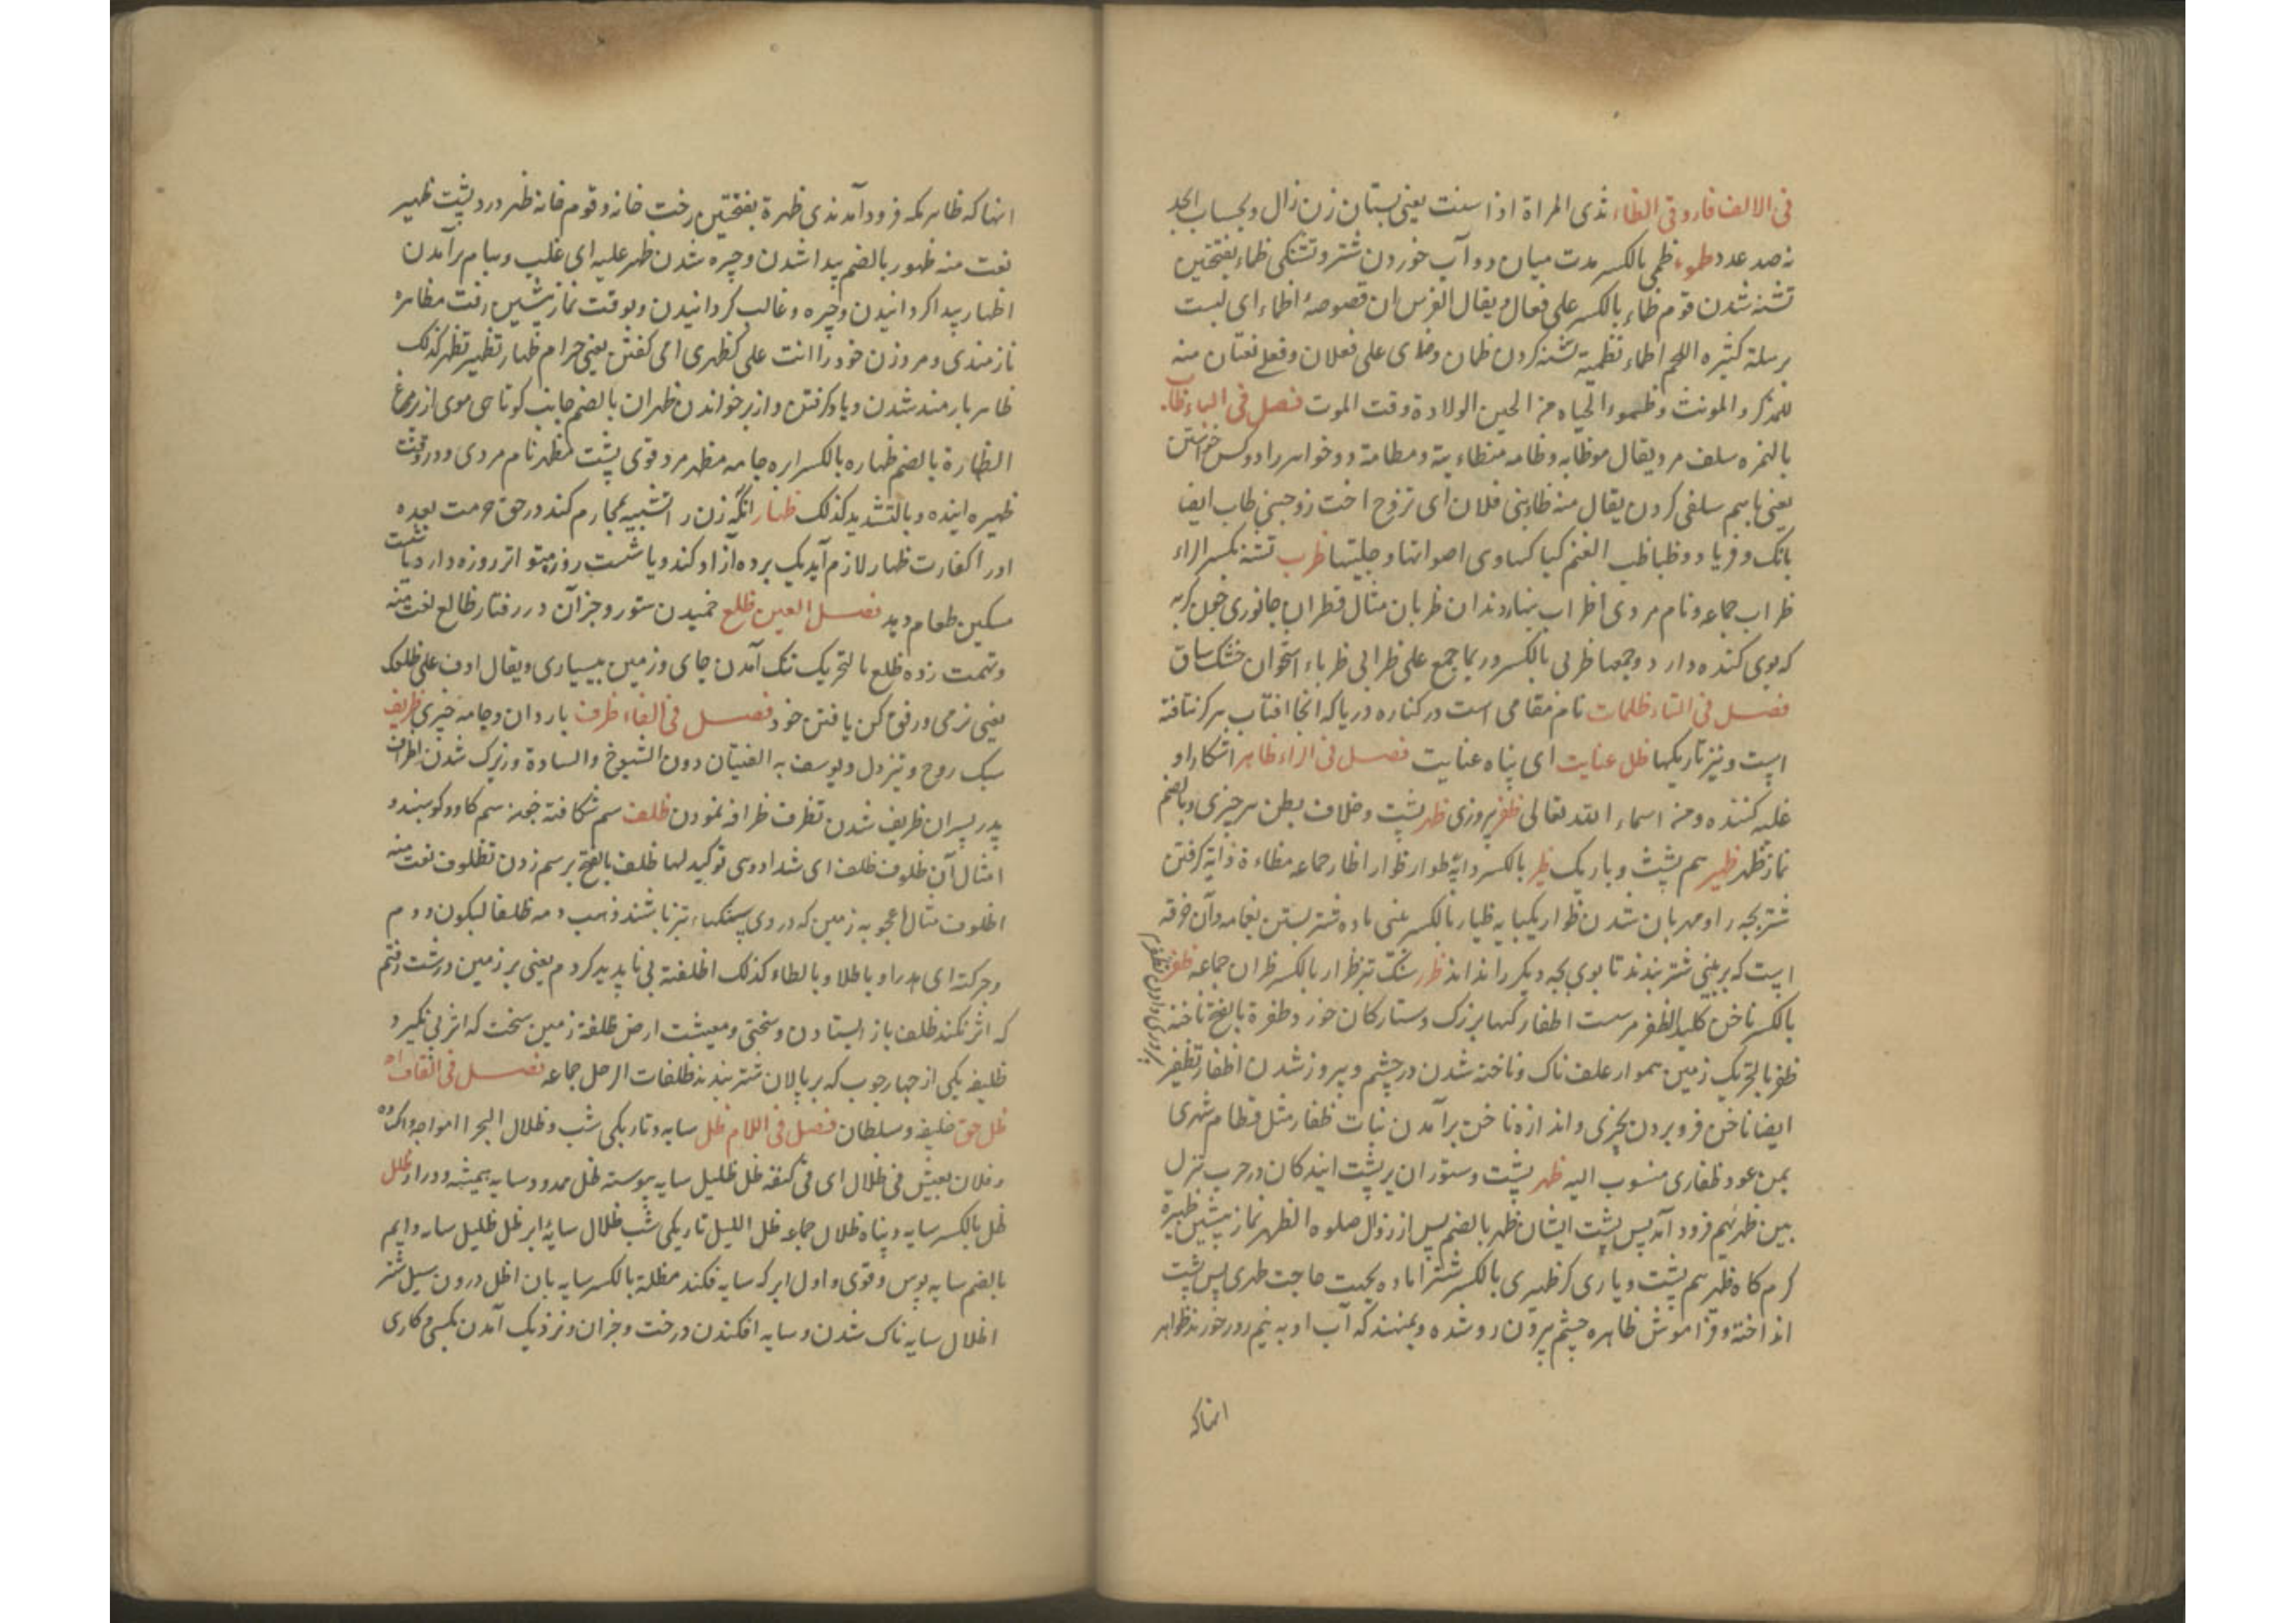 فی الالف فاروقی الظاء ثدی المراة اذا سنت یعنی پستان زن زال وبحساب ابجد
نه صد عدد ظموء ظمی بالکسر مدت میان دو آب خوردن شتر وتشنکی ظماء بفتحتین
تشنه شدن قوم ظماء بالکسر علی فعال ویقال الفرس ان فصوصه اظماء ای لیست
برسلة کثیره اللحم اظماء تظمیة تشنه کردن ظمان وظمای علی فعلان وفعلی نعتان منه
للمذکر والمونث وظموء الحیاه من الحین الولادة وقت الموت فصل فی الباء ظأب
بالهمزه سلف مرد یقال موظابه وظامه متظاءبة ومظامة دو خواهر را دو کس خواستن
یعنی باسم سلفی کردن یقال منه ظاءبنی فلان ای تزوج اخت زوجتی ظاب ایضا
بانک وفریاد وظباظب الغنم کباکبها وی اصواتها وجلبتها ظرب تشته بکسر الراء
ظراب جماعه ونام مردی اظراب بنهاء دندان ظربان مثال قطران جانوری چون کربه
که بوی کنده دارد وجمعها ظربی بالکسر وربما جمع علی ظرابی ظرباء استخوان خشک ساق
فصل فی التاء ظلمات نام مقامی است در کناره دریا که انجا افتاب هرکز نتافته
است ونیز تاریکیها ظل عنایت ای پناه عنایت فصل فی الراء ظاهر اشکارا و
غلبه کننده ومن اسماء الله تعالی ظفر پیروزی ظهر پشت وخلاف بطن هر چیزی وبالضم
نماز ظهر ظهیر هم پشت وباریک ظیر بالکسر دایه ظوار ظوار اظار جماعه مظاءة دایة کرفتن
شتر بچه را ومهربان شدن ظوار یکبایه ظیار بالکسر بینی ماده شتر بستن بغمامه وآن خرقه
است که بر بینی شتر بندند تا بوی بچه دیکر را نداند ظرر سنک تیز ظرار بالکسر ظران جماعه ظفر
بالکسر ناخن کلید الظفر مرست اظفار کنها بزرک وستارکان خورد ظفرة بالفتح ناخنه
ظفر بالتحریک زمین هموار علف ناک وناخنه شدن در چشم وپیروز شدن اظفار تظفیر
ایضا ناخن فرو بردن بچیزی واندازه ناخن برآمدن نبات ظفار مثل قطام شهری
بیمن عود ظفاری منسوب الیه ظهر پشت وستوران بر پشت ایندکان در حرب نزل
بین ظهریهم فرود آمد پس پشت ایشان ظهر بالضم پس از زوال صلوه الظهر نماز پیشین ظهیرة
کرم کاه ظهر هم پشت ویاری کر ظهیری بالکسر شتر اماده بجهت حاجت ظهری پس پشت
انداخته وفراموش ظاهره چشم بیرون رو شده وبمنهند که آب او به نیم روز خورند ظواهر
انهاکه
انهاکه ظاهر مکه فرود آمدندی ظهرة بفتحتین رخت خانه وقوم خانه ظهر درد پشت ظهیر
نعت منه ظهور بالضم پیدا شدن وچیره شدن ظهر علیه ای غلب وببام برآمدن
اظهار پیدا کردانیدن وچیره وغالب کردانیدن وبوقت نماز پیشین رفت مظاهره
نازمندی ومر وزن خود را انت علی کظهری امی کفتن یعنی حرام ظهار تظهیر تظهر کذلک
ظاهر بارمند شدن ویاد کرفتن واز بر خواندن ظهران بالضم جانب کوتاهی موی از پر مرغ
الظهارة بالضم ظهاره بالکسر ابره جامه مظهر مرد قوی پشت مظهر نام مردی ودر وقت
ظهیره اینده وبالتشدید کذلک ظهار انکه زن را تشبیه بمحارم کند در حق حرمت بعده
او را کفارت ظهار لازم آید یک برده آزاد کند ویا شصت روز متواتر روزه دارد یا شصت
مسکین طعام دهد فصل العین ظلع خمیدن ستور وجز آن در رفتار ظالع نعت منه
وتهمت زده ظلع بالتحریک تنک آمدن جای وزمین ببسیاری ویقال ارق علی ظلعک
یعنی نرمی ورفق کن یا فتن خود فصل فی الفاء ظرف باردان وجامه چیزی ظریف
سبک روح وتیز دل ویوسف به الفتیان دون الشیوخ والسادة وزیرک شدن اظراف
پدر پسران ظریف شدن تظرف ظرافه نمودن ظلف سم شکافته چون سم کاو وکوسپند و
امثال آن ظلوف ظلف ای شداد وی توکید لها ظلف بالفتح بر سم زدن تظلوف نعت منه
اظلوف مثال اعجوبه زمین که در وی سنکها تیز باشند ذهب دمه ظلفا لیکون ودم
وحرکته ای هدرا وباطلا وبالطاء کذلک اظلفته پی ناپدید کردم یعنی بر زمین درشت رفتم
که اثر نکند ظلف باز ایستادن وسختی ومعیشت ارض ظلفة زمین سخت که اثر پی نکیرد
ظلیفه یکی از چهار چوب که بر پالان شتر بندند ظلفات الرحل جماعه فصل فی القاف
ظل حق خلیفه وسلطان فصل فی اللام ظل سایه وتاریکی شب وظلال البحر امواجه
وفلان یعیش فی ظلال ای فی کنفه ظل ظلیل سایه پیوسته ظل ممدود سایه همیشه ودراز ظلل
ظل بالکسر سایه وپناه ظلال جماعه ظل اللیل تاریکی شب ظلال سایه ابر ظل ظلیل سایه دایم
بالضم سایه پوس وقوی واول ابر که سایه فکند مظلة بالکسر سایه بان اظل درون سبل شتر
اظلال سایه ناک شدن وسایه افکندن درخت وجز ان ونزدیک آمدن بکسی وکاری